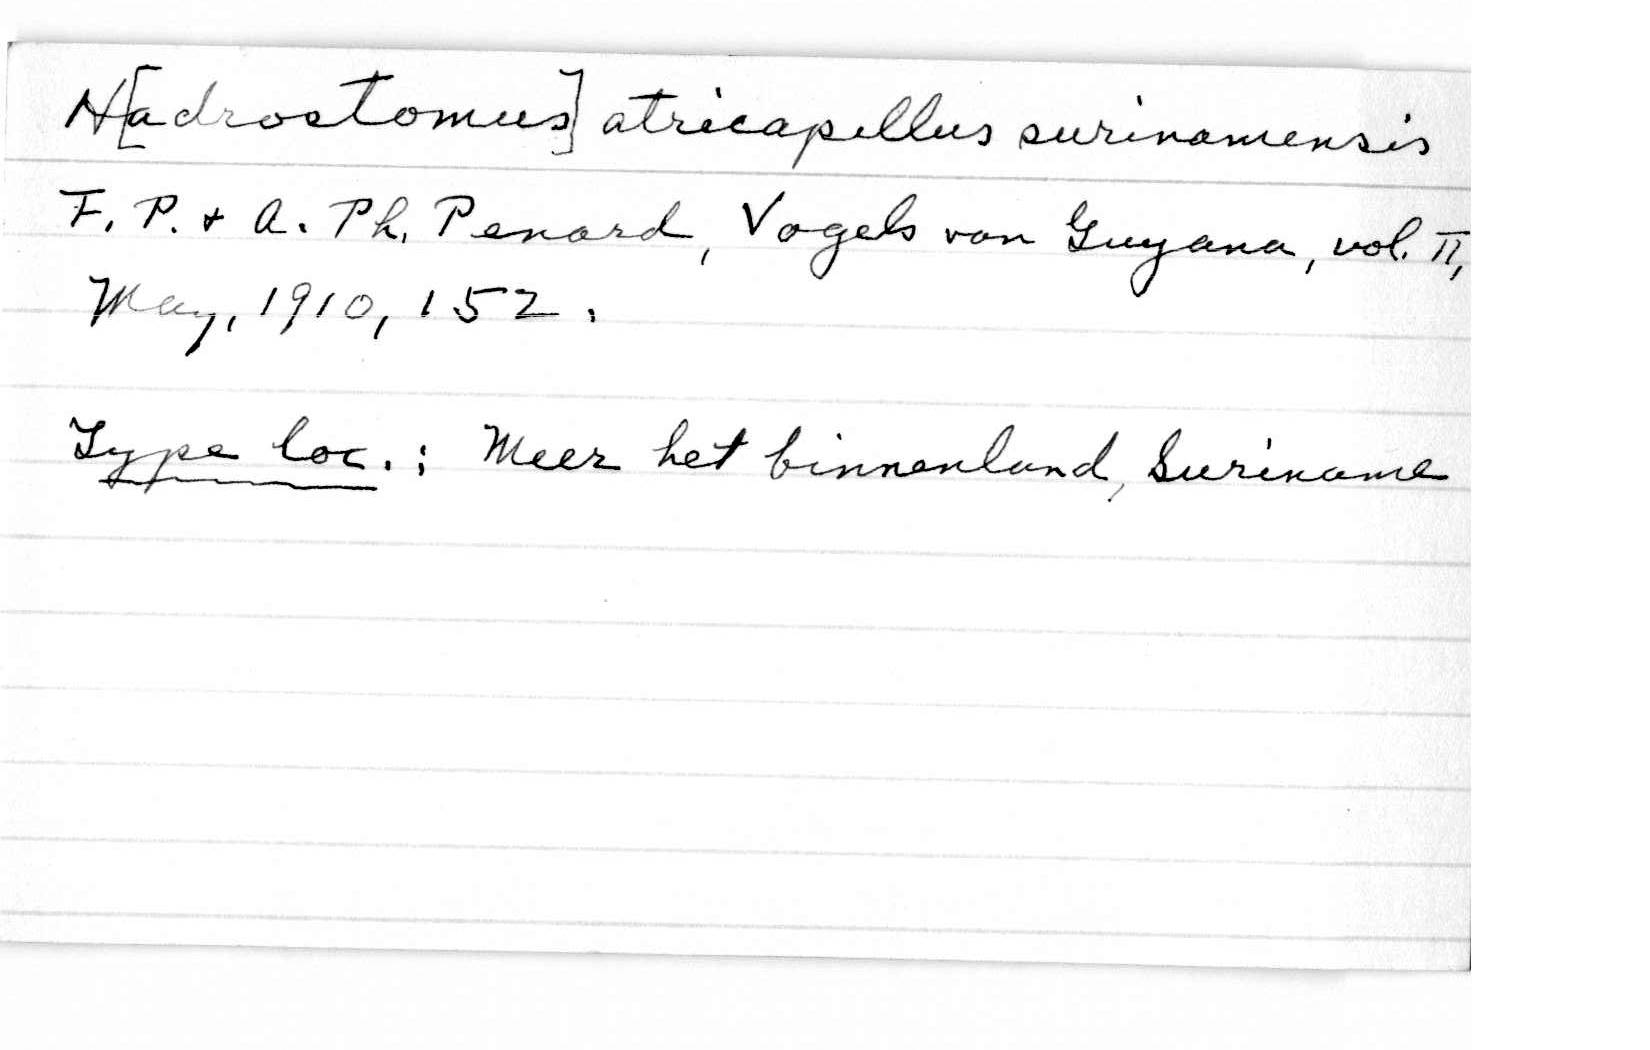 H[adrostomus] atricapillus surinamensis
F. P. + A. Ph. Penard, Vogels van Guyana, vol. II,
May, 1910, 152.
Type loc.: Meer het binnenland, Suriname